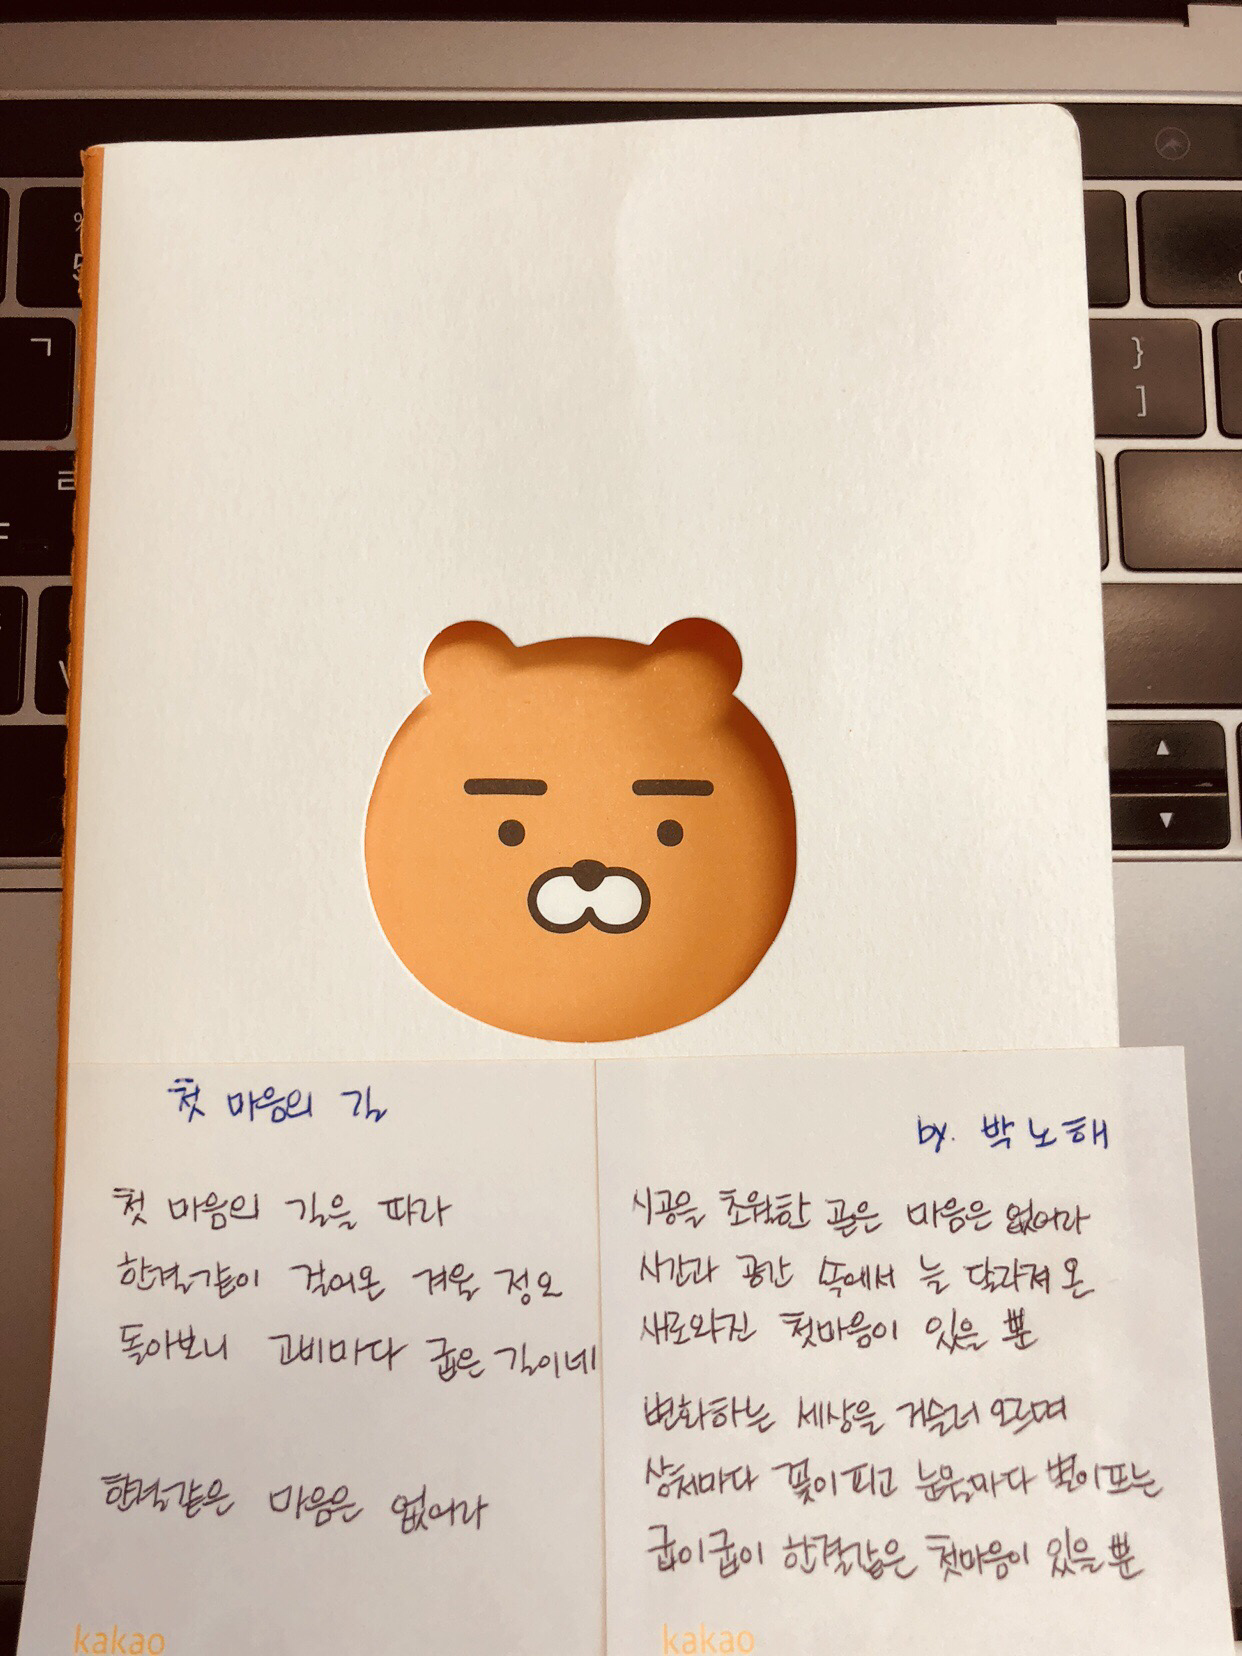 첫 마음의 길
첫 마음의 길을 따라
한결같이 걸어온 겨울 정오
돌아보니 고비마다 굽은 길이네
한결같은 마음은 없어라
kakao
by. 박노해
시공을 초월한 곧은 마음은 없어라
시간과 공간 속에서 늘 달라져 온
새로와진 첫마음이 있을 뿐
변화하는 세상을 거슬러 오르며
상처마다 꽃이 피고 눈물마다 별이 뜨는
굽이굽이 한결같은 첫마음이 있을 뿐
kakao
ㄱ
}
]